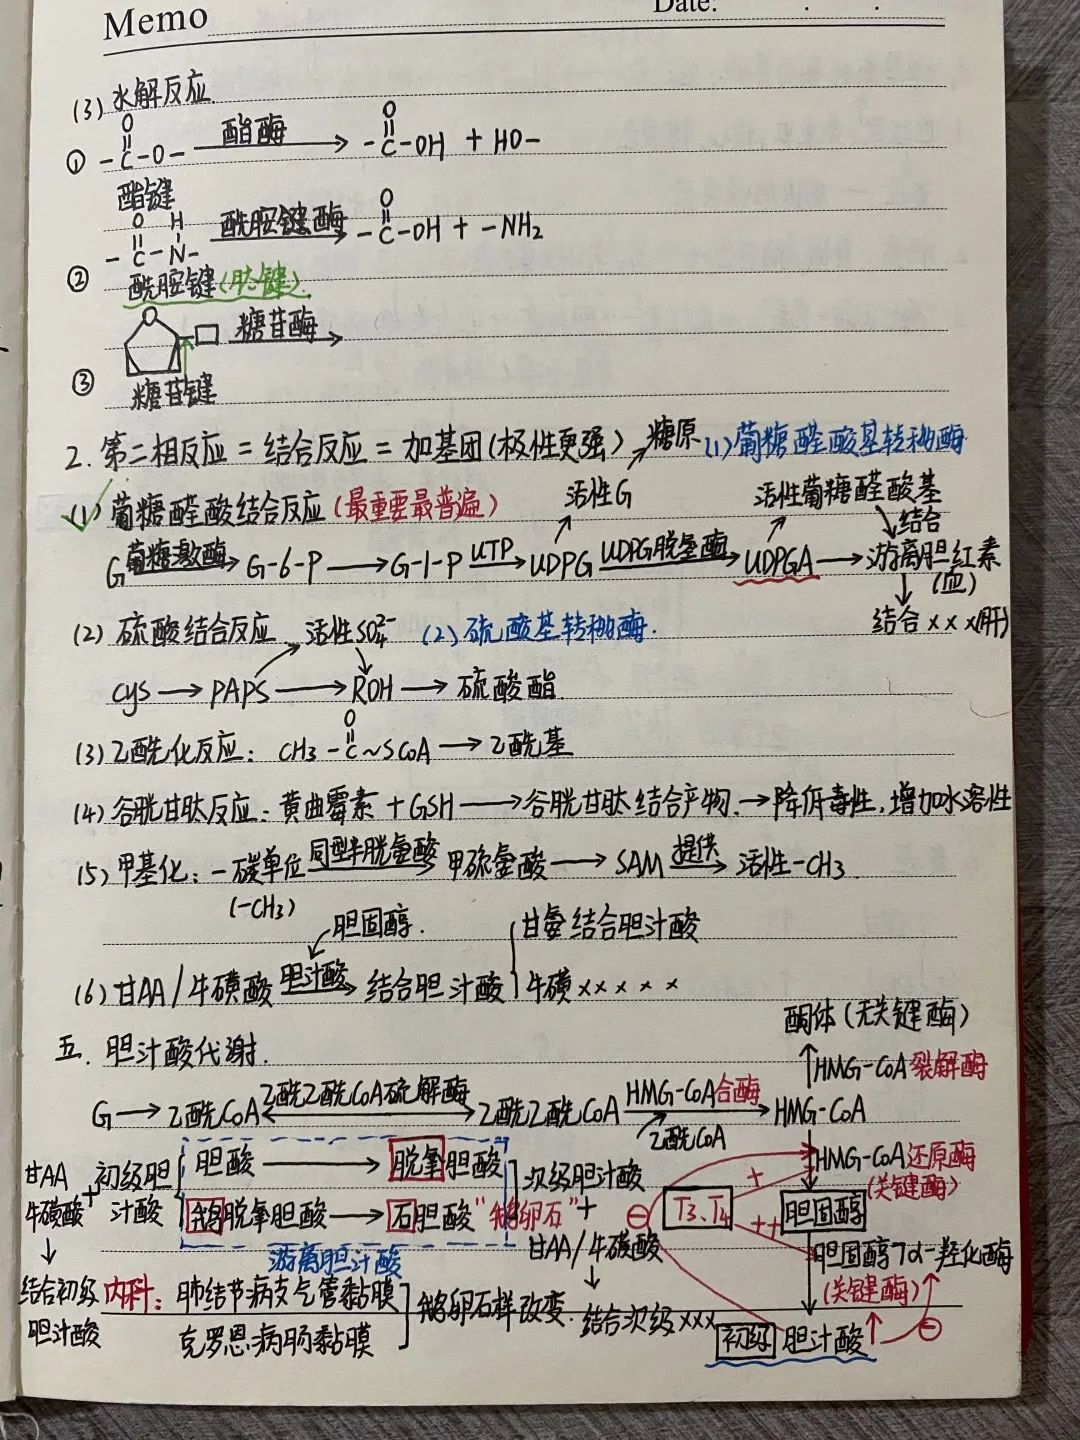 Memo Date: . .
(3) 水解反应.
① -C(=O)-O- 酯酶→ -C(=O)-OH + HO-
酯键
② -C(=O)-N(H)- 酰胺键酶→ -C(=O)-OH + -NH₂
酰胺键(肽键).
③ 糖苷酶→
糖苷键
2. 第二相反应 = 结合反应 = 加基团(极性更强) 糖原 (1)葡糖醛酸基转移酶
(1) 葡糖醛酸结合反应(最重要最普遍) 活性G 活性葡糖醛酸基
G 葡糖激酶→ G-6-P → G-1-P UTP→ UDPG UDPG脱氢酶→ UDPGA → 游离胆红素(血) 结合
(2) 硫酸结合反应 活性SO₄²⁻ (2)硫酸基转移酶. 结合×××(肝)
cys → PAPS → ROH → 硫酸酯.
(3) 乙酰化反应: CH₃-C(=O)~SCoA → 乙酰基
(4) 谷胱甘肽反应: 黄曲霉素 + GSH → 谷胱甘肽结合产物. → 降低毒性, 增加水溶性
(5) 甲基化: 一碳单位 同型半胱氨酸→ 甲硫氨酸 → SAM 提供→ 活性-CH₃.
(-CH₃)
胆固醇. 甘氨结合胆汁酸
(6) 甘AA/牛磺酸 胆汁酸→ 结合胆汁酸 牛磺×××××
酮体(无关键酶)
五. 胆汁酸代谢.
HMG-CoA裂解酶
G → 乙酰CoA 乙酰乙酰CoA硫解酶 乙酰乙酰CoA HMG-CoA合酶→ HMG-CoA
乙酰CoA
甘AA 牛磺酸 + 初级胆汁酸 胆酸 → 脱氧胆酸 次级胆汁酸 HMG-CoA还原酶
(关键酶)
鹅脱氧胆酸 → 石胆酸 "鹅卵石" + ⊖ T₃、T₄ + ++ 胆固醇
游离胆汁酸 甘AA/牛磺酸 胆固醇7α-羟化酶
(关键酶)
结合初级胆汁酸 内科: 肺结节病支气管黏膜 鹅卵石样改变. 结合次级×××
克罗恩病肠黏膜 初级 胆汁酸↑ ⊖